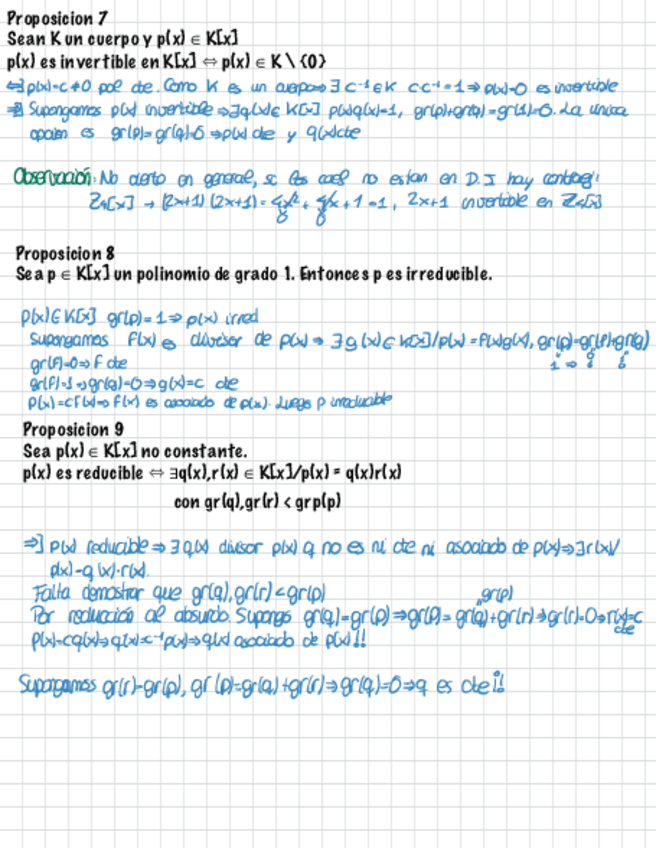 Proposicion 7
Sean K un cuerpo y p(x) ∈ K[x]
p(x) es invertible en K[x] ⇔ p(x) ∈ K \ {0}
⇐] p(x)=c≠0 pol cte. Como K es un cuerpo ⇒ ∃ c⁻¹∈K cc⁻¹=1 ⇒ p(x)=0 es invertible
⇒] Supongamos p(x) invertible ⇒ ∃q(x)∈ K[x] p(x)q(x)=1, gr(p)+gr(q)=gr(1)=0. La única
opción es gr(p)=gr(q)=0 ⇒ p(x) cte y q(x) cte
Observación: No cierto en general, si los coef no estan en D.I hay contraej:
Z₄[x] → (2x+1)(2x+1)= 4x² + 4x + 1 = 1, 2x+1 invertible en Z₄[x]
0 0
Proposicion 8
Sea p ∈ K[x] un polinomio de grado 1. Entonces p es irreducible.
p(x)∈K[x] gr(p)=1 ⇒ p(x) irred
Supongamos f(x) es divisor de p(x) ⇒ ∃g(x)∈ K[x]/p(x)=f(x)g(x), gr(p)=gr(f)+gr(g)
gr(f)=0 ⇒ f cte
gr(f)=1 ⇒ gr(g)=0 ⇒ g(x)=c cte
p(x)=cf(x) ⇒ f(x) es asociado de p(x). Luego p irreducible
Proposicion 9
Sea p(x) ∈ K[x] no constante.
p(x) es reducible ⇔ ∃q(x),r(x) ∈ K[x]/p(x) = q(x)r(x)
con gr(q),gr(r) < grp(p)
⇒] p(x) reducible ⇒ ∃ q(x) divisor p(x) q no es ni cte ni asociado de p(x) ⇒ ∃r(x)/
p(x)=q(x)·r(x).
Falta demostrar que gr(q),gr(r)<gr(p)
gr(p)
Por reducción al absurdo. Supongo gr(q)=gr(p) ⇒ gr(p)= gr(q)+gr(r) ⇒ gr(r)=0 ⇒ r(x)=c
cte
p(x)=cq(x) ⇒ q(x)=c⁻¹p(x) ⇒ q(x) asociado de p(x)!!
Supongamos gr(r)=gr(p), gr(p)=gr(q)+gr(r) ⇒ gr(q)=0 ⇒ q es cte¡!